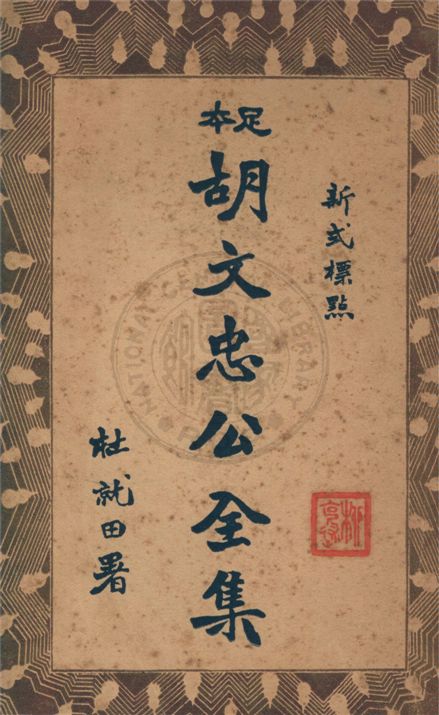 新式標點
足本
胡文忠公全集
杜就田署
NATIONAL CENTRAL LIBRARY